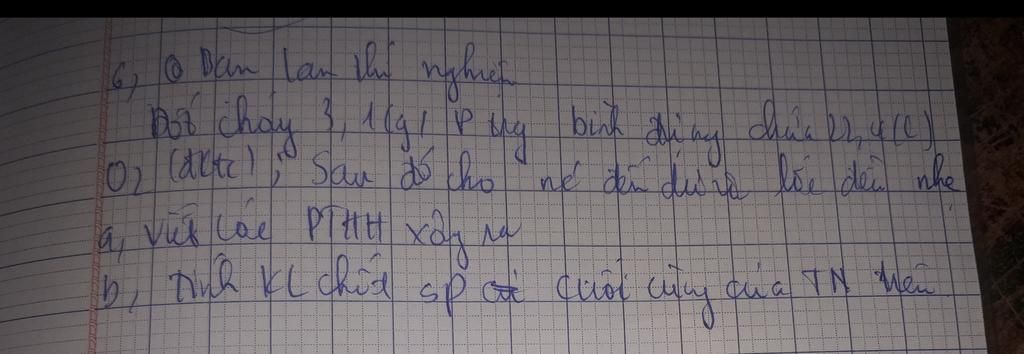 6, Bạn Lan thí nghiệm
Đốt cháy 3,1(g) P trg bình đựng chứa 22,4(l)
O2 (đktc); Sau đó cho nc đến dư và lắc đều nhẹ
a, Viết các PTHH xảy ra
b, Tính KL chất sp cuối cùng của TN trên